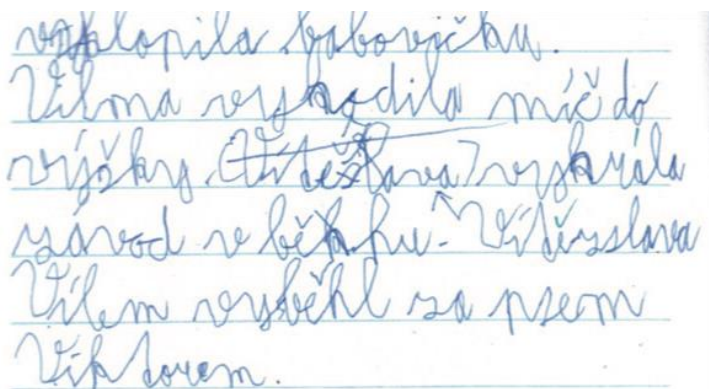 vyklopila bábovičku.
Vilma vyhodila míč do
výšky. (Vítěslava) vyhrála
závod v běhu. Vítězslava
Vilem vyběhl za psem
Viktorem.